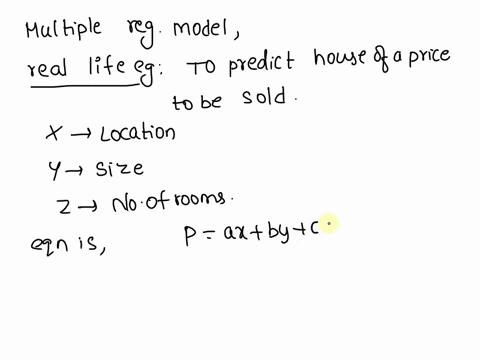 Multiple reg. model,
real life eg: To predict house of a price
to be sold.
X → Location
Y → Size
Z → No. of rooms.
eqn is, P = ax + by + c